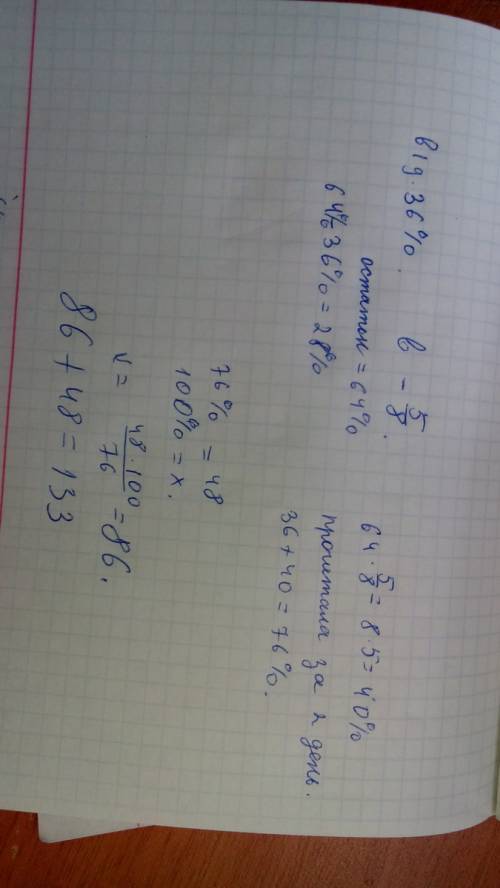 в 1 д. 36%.   в - 5/8.
остаток = 64%
64% 36% = 28%
64 · 5/8 = 8·5 = 40%
прочитала за 2 день.
36 + 40 = 76%.
76% = 48
100% = x.
x = 48·100/76 = 86.
86 + 48 = 133